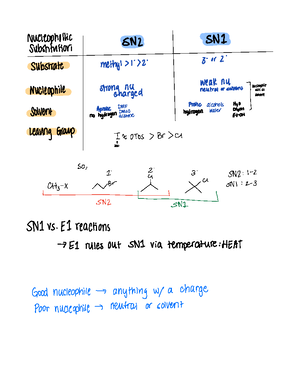 Nucleophilic Substitution
SN2
SN1
Substrate
methyl > 1° > 2°
3° or 2°
Nucleophile
strong nu
charged
weak nu
neutral or unstable
Solvent
Aprotic
no hydrogen
Protic
hydrogen
alcohols
water
Leaving Group
I ≈ OTs > Br > Cl
So,
2°
2°
3°
CH₃-X
Br
Cl
SN2: 1-2
SN1: 2-3
SN2
SN1
SN1 vs. E1 reactions
→ E1 rules out SN1 via temperature: HEAT
Good nucleophile → anything w/ a charge
Poor nucleophile → neutral or solvent